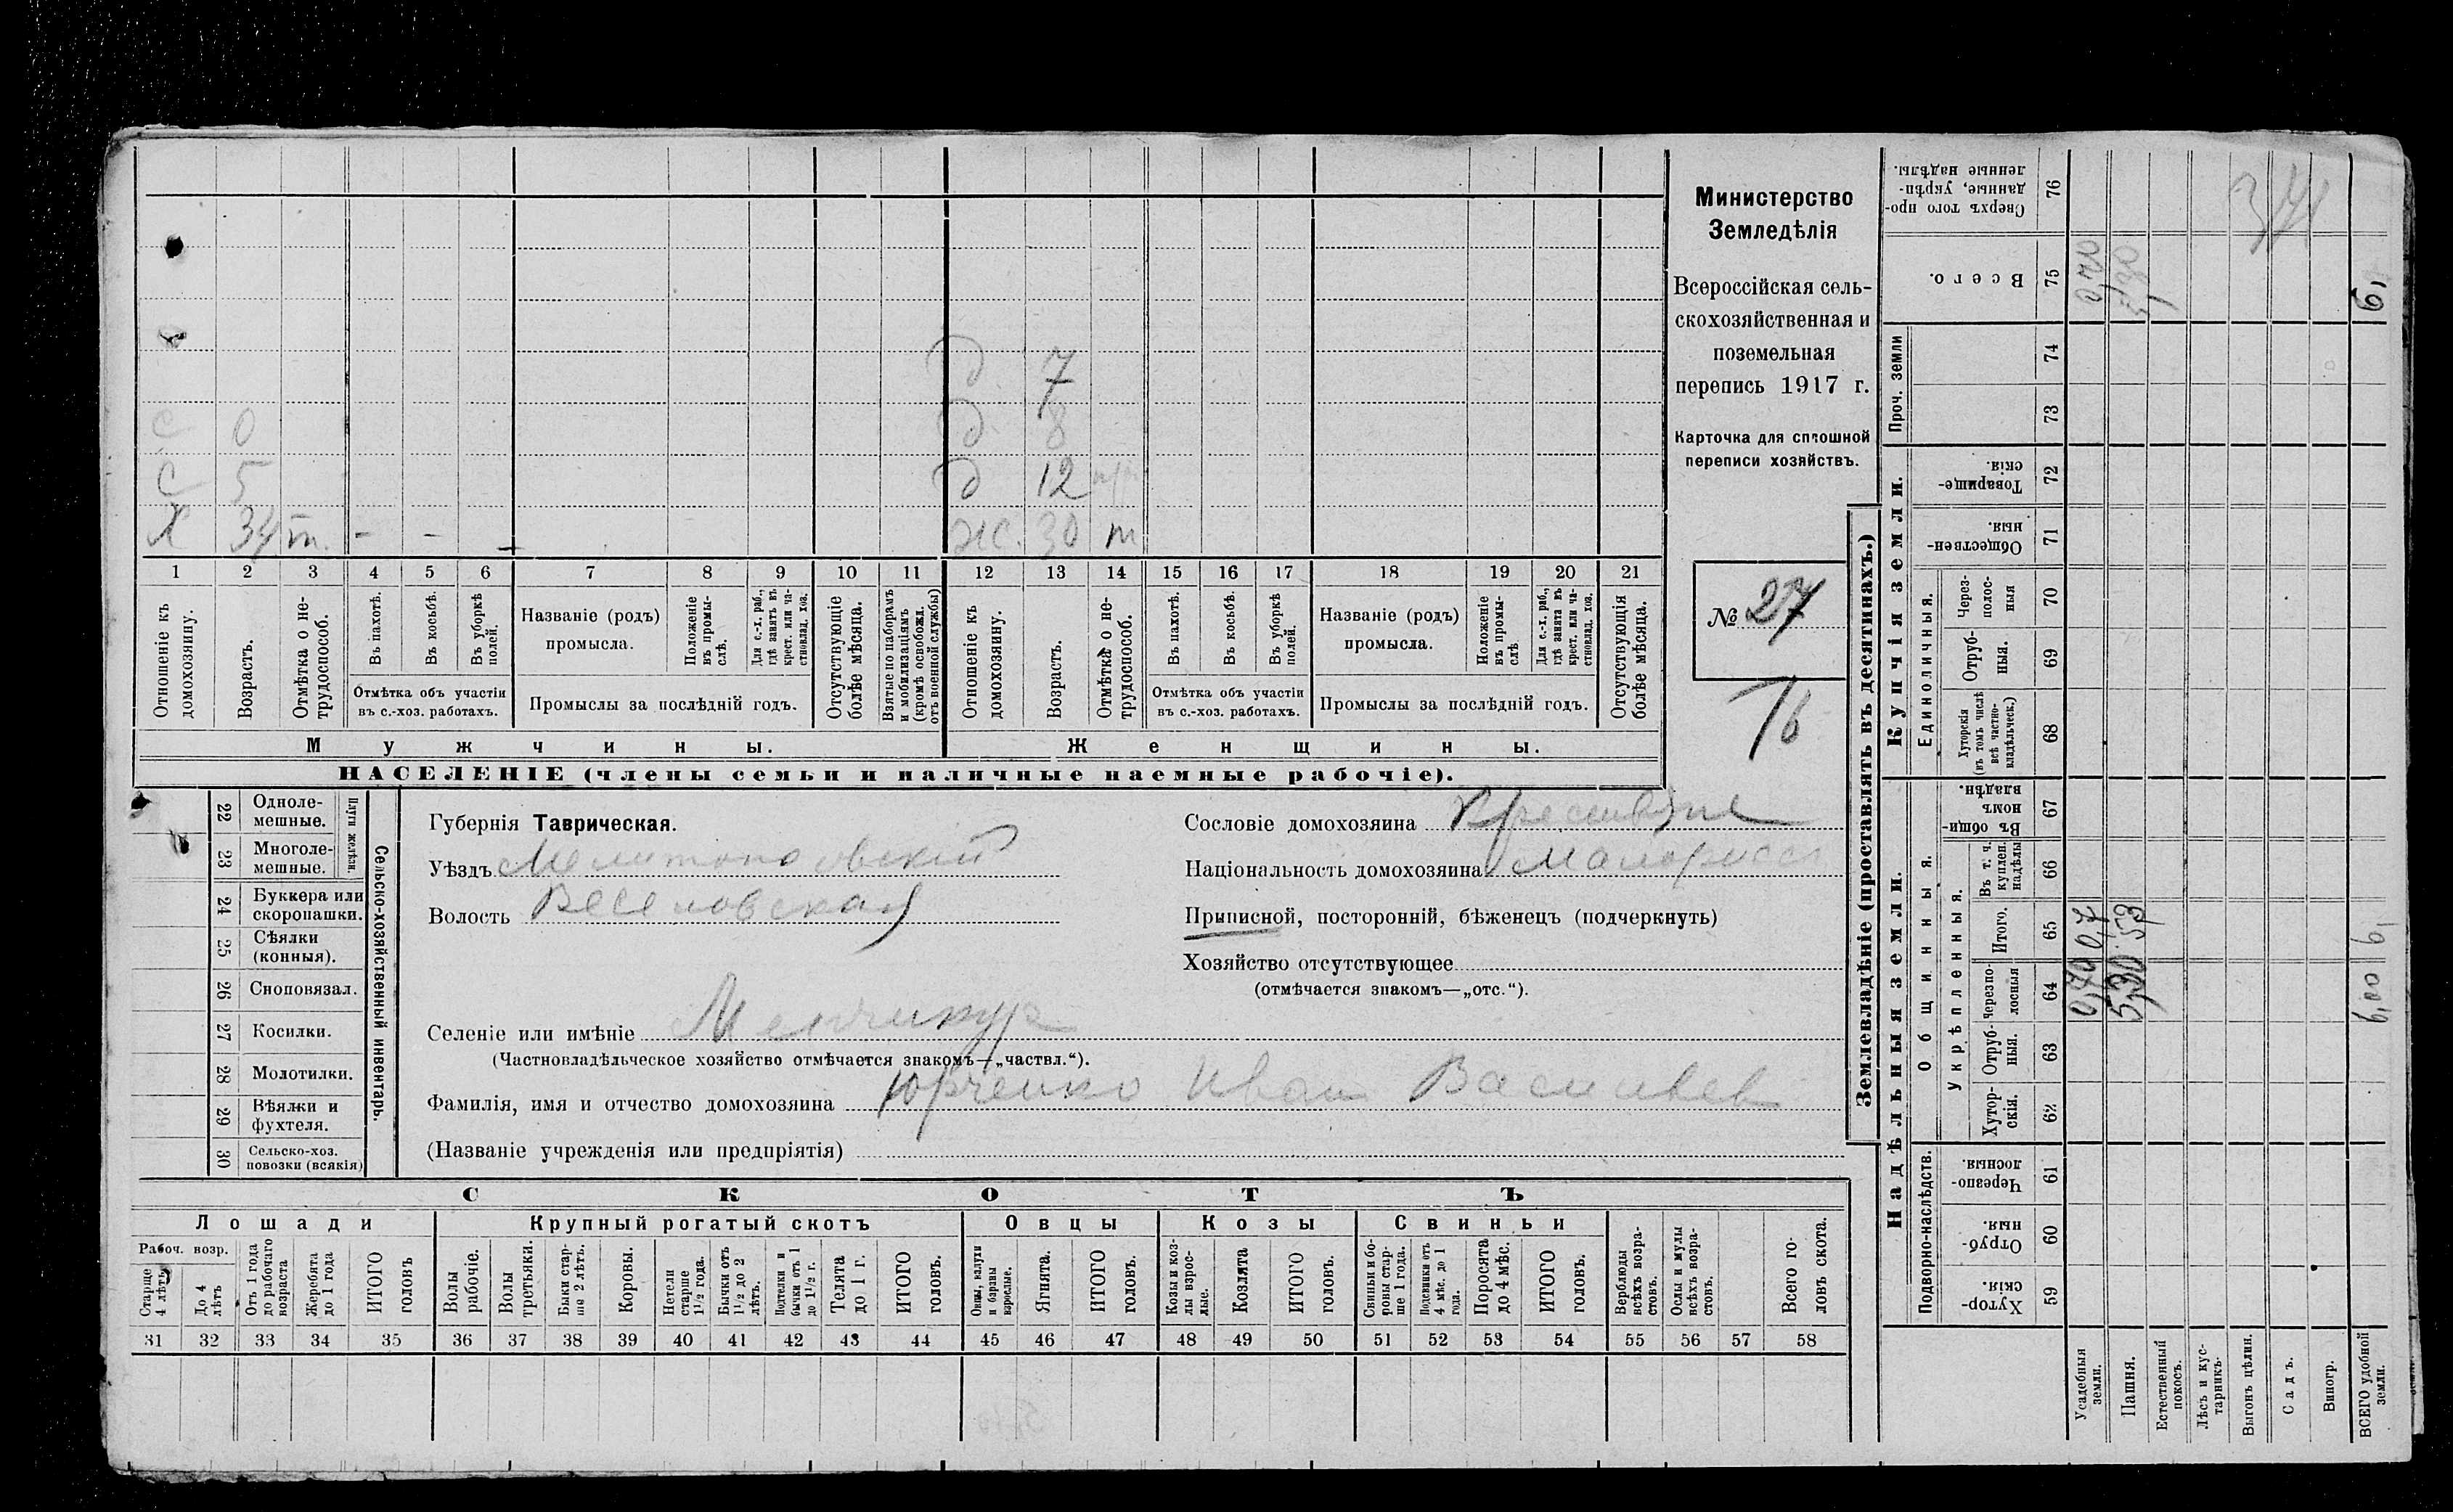 Министерство
Земледѣлія
Всероссійская сель-
скохозяйственная и
поземельная
перепись 1917 г.
Карточка для сплошной
переписи хозяйствъ.
№ 27
д 7
с 0 д 8
с 5 д 12
х 34 т. - - - ж. 30 т
1 2 3 4 5 6 7 8 9 10 11 12 13 14 15 16 17 18 19 20 21
Отношеніе къ домохозяину.
Возрастъ.
Отмѣтка о не-трудоспособ.
Въ пахотѣ.
Въ косьбѣ.
Въ уборкѣ полей.
Отмѣтка объ участіи
въ с.-хоз. работахъ.
Названіе (родъ)
промысла.
Положеніе въ промы-слѣ.
Для с.-х. раб., гдѣ занятъ въ крест. или ча-стновлад. хоз.
Промыслы за послѣдній годъ.
Отсутствующіе болѣе мѣсяца.
Взятые по наборамъ и мобилизаціямъ (кромѣ освобожд. отъ военной службы)
Отношеніе къ домохозяину.
Возрастъ.
Отмѣтка о не-трудоспособ.
Въ пахотѣ.
Въ косьбѣ.
Въ уборкѣ полей.
Отмѣтка объ участіи
въ с.-хоз. работахъ.
Названіе (родъ)
промысла.
Положеніе въ промы-слѣ
Для с.-х. раб., гдѣ занята въ крест. или ча-стновлад. хоз.
Промыслы за послѣдній годъ.
Отсутствующія болѣе мѣсяца.
Мужчины. Женщины.
НАСЕЛЕНІЕ (члены семьи и наличные наемные рабочіе).
22 Одноле-мешные.
23 Многоле-мешные.
Плуги желѣзн.
24 Буккера или скоропашки.
25 Сѣялки (конныя).
26 Сноповязал.
27 Косилки.
28 Молотилки.
29 Вѣялки и фухтеля.
30 Сельско-хоз. повозки (всякія)
Сельско-хозяйственный инвентарь.
Губернія Таврическая.
Уѣздъ Мелитопольскій
Волость Веселовская
Сословіе домохозяина Крестьяне
Національность домохозяина Малороссъ
Приписной, посторонній, бѣженецъ (подчеркнуть)
Хозяйство отсутствующее
(отмѣчается знакомъ—„отс.“).
Селеніе или имѣніе Менчикур
(Частновладѣльческое хозяйство отмѣчается знакомъ—„частвл.“).
Фамилія, имя и отчество домохозяина Юрченко Иван Васильев
(Названіе учрежденія или предпріятія)
СКОТЪ
Лошади Крупный рогатый скотъ Овцы Козы Свиньи
Рабоч. возр.
Старше 4 лѣтъ
До 4 лѣтъ
Отъ 1 года до рабочаго возраста
Жеребята до 1 года
ИТОГО головъ
Волы рабочіе.
Волы третьяки.
Быки стар-ше 2 лѣтъ.
Коровы.
Нетели старше 1½ года.
Бычки отъ 1½ до 2 лѣтъ.
Подтелки и бычки отъ 1 до 1½ г.
Телята до 1 г.
ИТОГО головъ.
Овцы, валухи и бараны взрослые.
Ягнята.
ИТОГО головъ.
Козы и коз-лы взрос-лые.
Козлята
ИТОГО головъ.
Свиньи и бо-ровы стар-ше 1 года.
Подсвинки отъ 4 мѣс. до 1 года.
Поросята до 4 мѣс.
ИТОГО головъ.
Верблюды всѣхъ возра-стовъ.
Ослы и мулы всѣхъ возра-стовъ.
Всего го-ловъ скота.
31 32 33 34 35 36 37 38 39 40 41 42 43 44 45 46 47 48 49 50 51 52 53 54 55 56 57 58
Землевладѣніе (проставлять въ десятинахъ.)
Надѣльныя земли.
Купчія земли.
Проч. земли
Подворно-наслѣдств.
Общинныя.
Укрѣпленныя.
Единоличныя.
59 Хутор-скія
60 Отруб-ныя.
61 Черезпо-лосныя.
62 Хутор-скія.
63 Отруб-ныя.
64 Черезпо-лосныя
65 Итого.
66 Въ т. ч. куплен. надѣлы
67 Въ общи-номъ владѣн.
68 Хуторскія (въ томъ числѣ всѣ частно-владѣльческ.)
69 Отруб-ныя.
70 Через-полос-ныя
71 Обществен-ныя.
72 Товарище-скія.
73
74
75 Всего.
76 Сверхъ того про-данные, укрѣп-ленные надѣлы.
Усадебныя земли. 0,70 0,7 0,70
Пашня. 5,30 5,3 5,30
Естественный покосъ.
Лѣсъ и кус-тарникъ.
Выгонъ цѣлин.
Садъ.
Виногр.
ВСЕГО удобной земли. 6,00 6, 6,